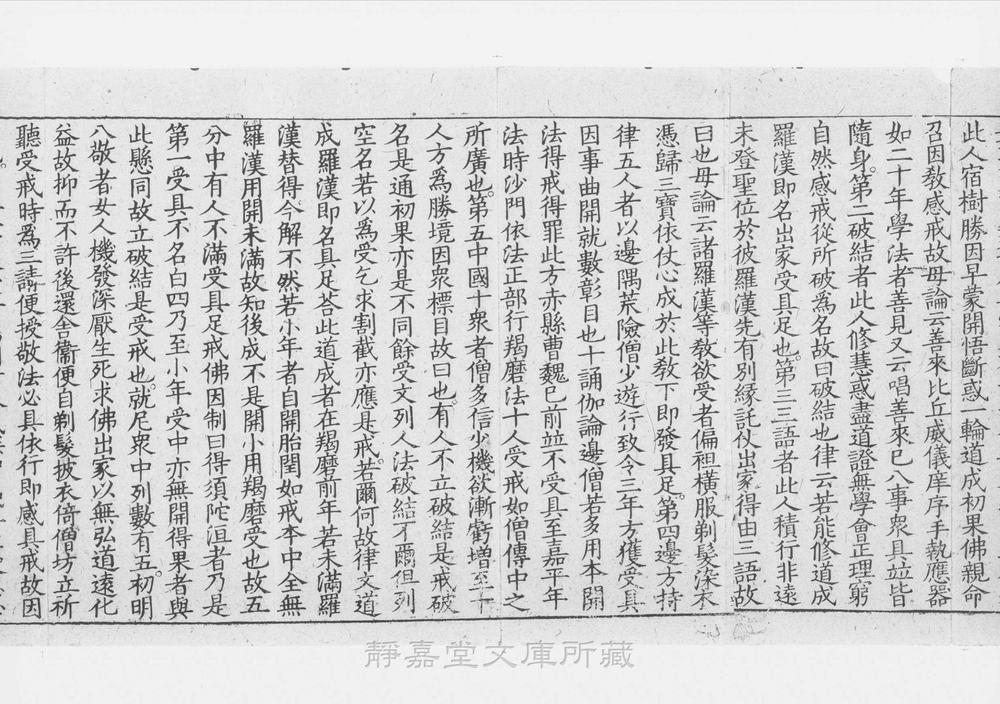 此人宿樹勝因早蒙開悟斷惑一輪道成初果佛親命
召因教感戒故母論云善來比丘威儀庠序手執應器
如二十年學法者善見又云唱善來已八事眾具並皆
隨身第二破結者此人修慧惑盡道證無學會正理窮
自然感戒從所破為名故曰破結也律云若能修道成
羅漢即名出家受具足也第三三語者此人積行非遠
未登聖位於彼羅漢先有別緣託仗出家得由三語故
曰也母論云諸羅漢等教欲受者偏袒橫服剃髮深本
憑歸三寶依仗心成於此教下即發具足第四邊方持
律五人者以邊隅荒險僧少遊行致令三年方獲受具
因事曲開就數彰目也十誦伽論邊僧若多用本開
法得戒得罪此方亦縣曹魏已前並不受具至嘉平年
法時沙門依法正部行羯磨法十人受戒如僧傳中之
所廣也第五中國十眾者僧多信少機欲漸虧增至十
人方為勝境因眾標目故曰也有人不立破結是戒破
名是通初果亦是不同餘受文列人法破結不爾但列
空名若以為受乞求割截亦應是戒若爾何故律文道
成羅漢即名具足荅此道成者在羯磨前年若未滿羅
漢替得今解不然若小年者自開胎閏如戒本中全無
羅漢用開未滿故知後成不是開小用羯磨受也故五
分中有人不滿受具足戒佛因制曰得須陀洹者乃是
第一受具不名白四乃至小年受中亦無開得果者與
此懸同故立破結是受戒也就尼眾中列數有五初明
八敬者女人機發深厭生死求佛出家以無弘道遠化
益故抑而不許後還舍衛便自剃髮披衣倍僧坊立祈
聽受戒時為三請便授敬法必具依行即感具戒故因
靜嘉堂文庫所藏